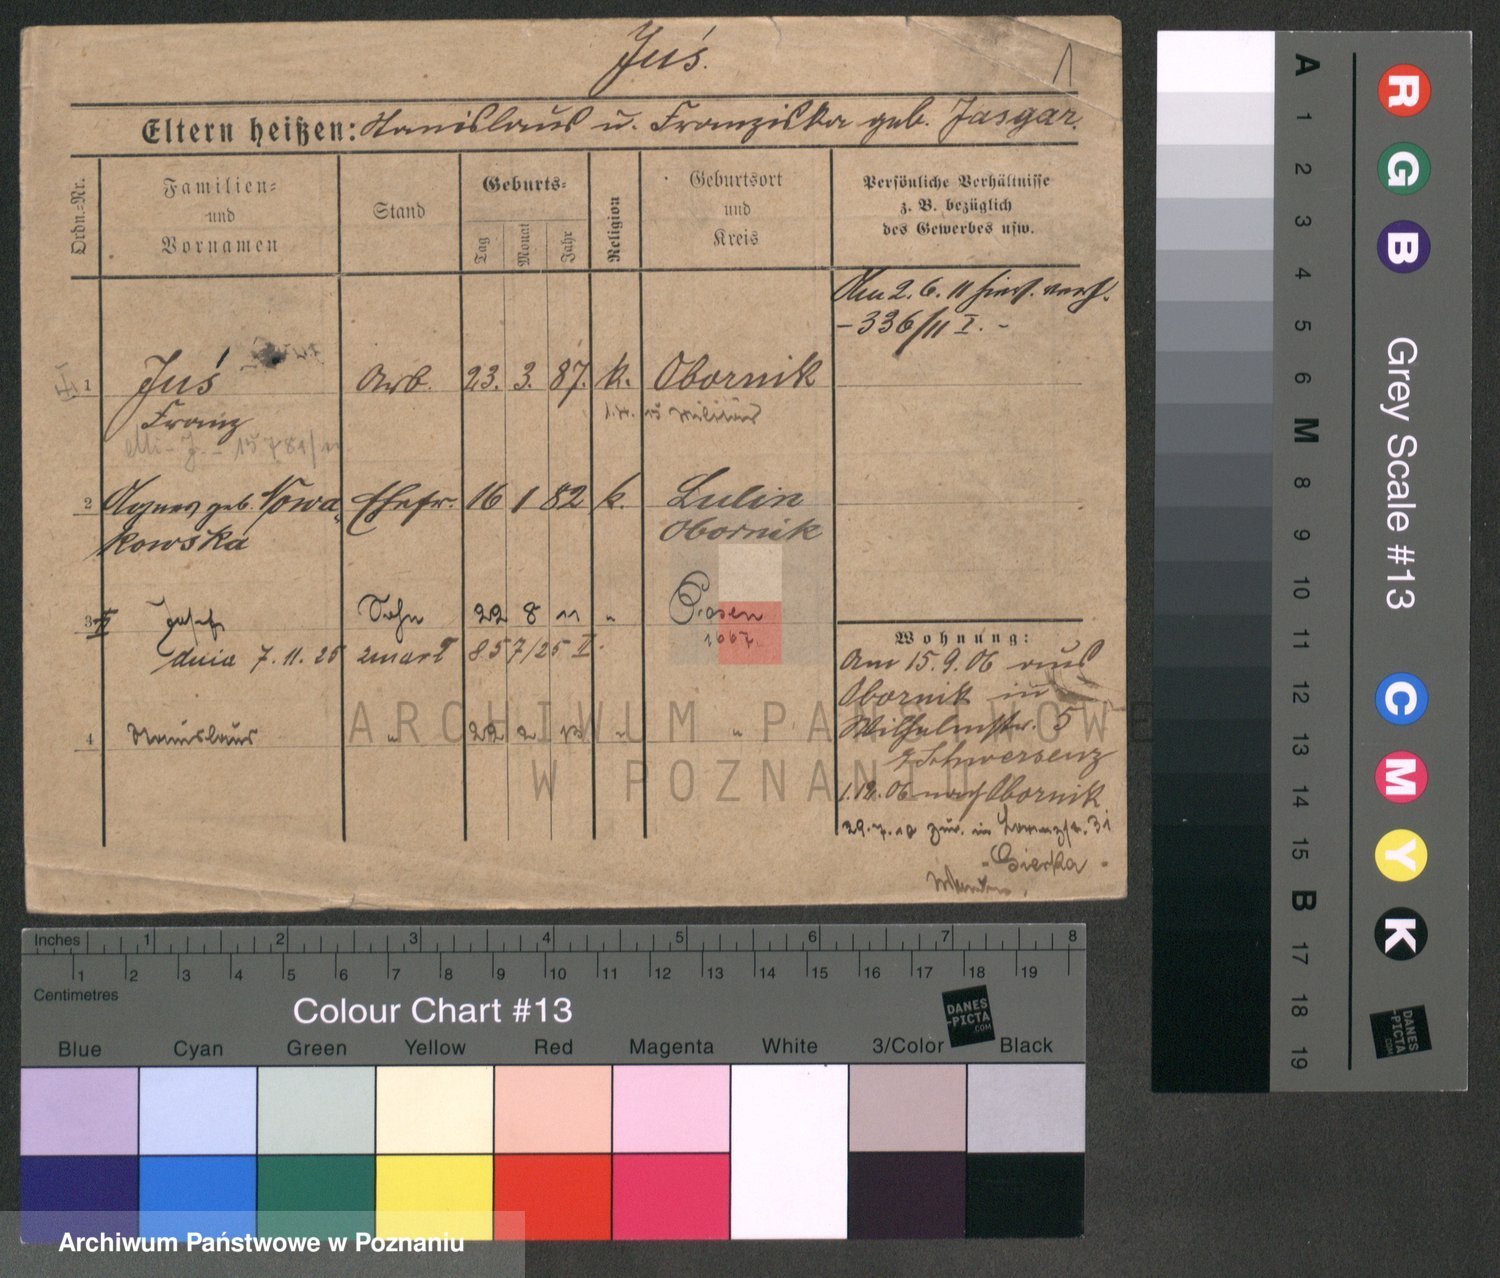 Juś.
1
Eltern heißen: Stanislaus u. Franziska geb. Jasgar.
Ordn.-Nr.
Familien-
und
Vornamen
Stand
Geburts-
Tag
Monat
Jahr
Religion
Geburtsort
und
Kreis
Persönliche Verhältnisse
z. B. bezüglich
des Gewerbes usw.
Am 2. 6. 11 hier
- 336/11 I. -
1 Juś Arb. 23. 3. 87. k. Obornik
Franz
Militär
2 Agnes geb. Nowa- Ehefr. 16 1 82 k. Lulin
kowska Obornik
3 Josef Sohn 22 8 11 " Posen
dnia 7. 11. 25 zmarł 857/25 II.
4 Stanislaus " 22 2 13 " "
Wohnung:
Am 15. 9. 06 aus
Obornik in
Wilhelmstr. 5
Schwersenz
1. 12. 06 nach Obornik
29. 7. 10 zur. in 31
ARCHIWUM PAŃSTWOWE
W POZNANIU
Inches 1 2 3 4 5 6 7 8
1 2 3 4 5 6 7 8 9 10 11 12 13 14 15 16 17 18 19
Centimetres
Colour Chart #13
DANES
-PICTA
.COM
Blue Cyan Green Yellow Red Magenta White 3/Color Black
Grey Scale #13
A 1 2 3 4 5 6 M 8 9 10 11 12 13 14 15 B 17 18 19
R G B C M Y K
DANES
-PICTA
.COM
Archiwum Państwowe w Poznaniu